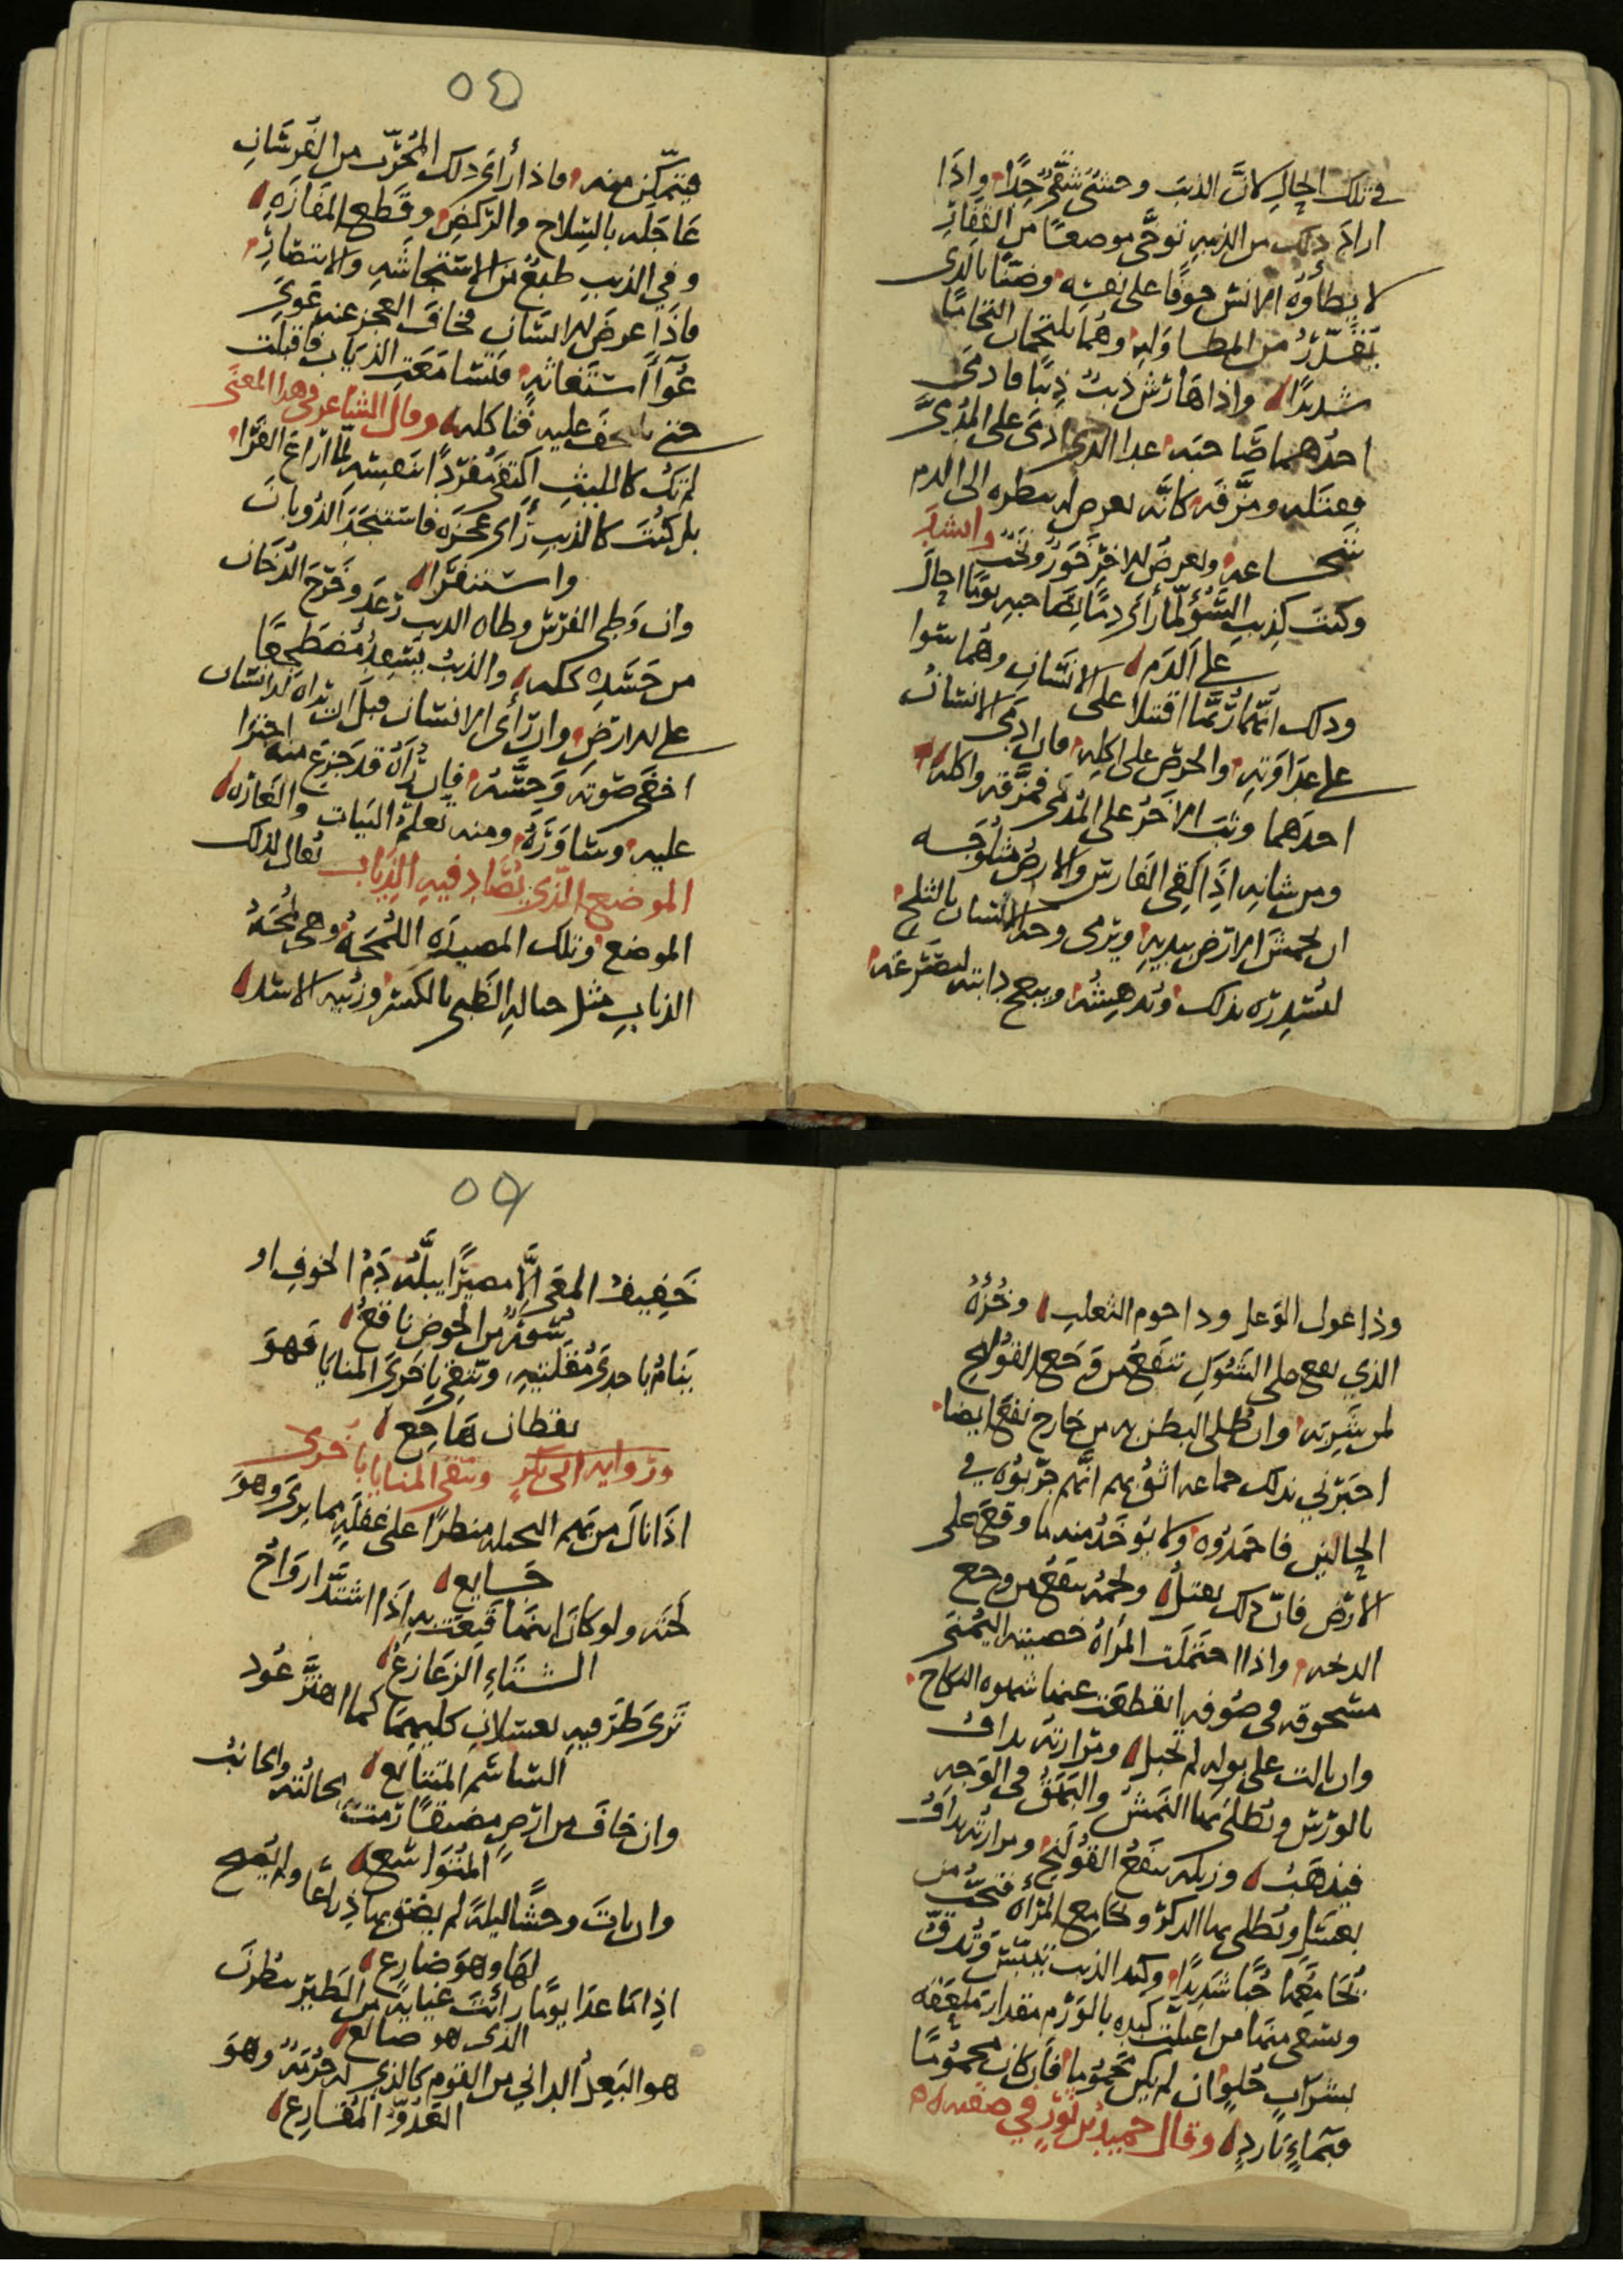 في تلك الحال لان الذيب وحشي شقي جدًا واذا
اراد ذلك من الذيبه توخى موضعًا من القفار
لا يطأوه الانس خوفًا على نفسه وضنًا بالذي
من المطاوله وهما يلتحمان التحامًا
شديدًا واذا هارش ذيبٌ ذيبًا فادمى
احدهما صاحبه عدا الذي ادمى على المدمى
فقتله ومزقه كانه
شجاعه خور وانشد
وكنت كذيب السؤ لما رأى دمًا بصاحبه يومًا احال
على الدم
وذلك انهما ربما اقبلا على الانسان وهما سوا
على عداوته والحرص على اكله فان ادمى الانسان
احدهما وثب الاخر على المدمى فمزقه واكله
ومن شانه اذا لقي الفارس والارض مثلوجه
ان يخمش الارض بيديه ويرمى وجه الانسان بالثلج
بذلك ويدهشه دابته
٥٤
فيتمكن منه فاذا رأى ذلك المجرب من الفرسان
عاجله بالسلاح والركض وقطع المفازه
وفي الذيب طبعٌ من الاستنجاشه والانتصار
فاذا عرض له انسان فخاف العجز عنه عوى
عُوآ استغاثه فتسامعت الذياب فاقبلت
حتى عليه فتاكله وقال الشاعر في هذا المعنى
لم تك كالليث اكتفى مفردًا بنفسه لما اراغ القرا
بل كنت كالذيب رأى عجزه فاستنجد الذوبان
واستنفرا
وان وطى الفرس وطاه الذيب رعد وخرج الدخان
من جسده كله والذيب مضطجعًا
على الارض وان رأى الانسان قبل ان يراه الانسان
اخفى صوته وحسّه فان رآه قد جزع منه اجترا
عليه وساوره ومنه تعلم البيات والغاره
الموضع الذي يصاد فيه الذياب يقال لذلك
الموضع وتلك المصيده اللُمجَه وهي لُمجَهُ
الذياب مثل حباله الظبي بالكسر وزبيه الاسد
وخُرُؤه
الذي يقع على الشوك ينفع من وجع القولنج
لمن شربه وان طلى البطن به من خارج نفع ايضا
اخبرني بذلك جماعه اثق بهم انهم جربوه في
الحالين فاحمدوه ولا يوخذ منه ما وقع على
الارض فان ذلك ولحمه ينفع من وجع
واذا احتملت المرأه خصيته اليمنى
مسحوقه في صوفه انقطعت عنها شهوه النكاح
وان بالت على بوله لم تحبل ومرارته يداف
بالورس ويطلى بها النمش والبهق في الوجه
فيذهب وزبله ينفع القولنج ومرارته يداف
بعسل ويطلى بها الذكر ويجامع المرأه فتحب من
يجامعها حبًا شديدًا وكبد الذيب تيبس وتدق
ويسقى منها من اعتلت كبده بالورم مقدار ملعقه
بشراب حلو ان لم يكن محمومًا فان كان محمومًا
فبماءٍ بارد وقال حميد بن ثور في صفته
٥٥
خفيف المعى الا مصيرًا يبله دم الجوف او
سُؤرٌ من الحوض ناقع
ينام باحدى مقلتيه ويتقي باخرى المنايا فهو
يقظان هاجع
ورواية ابي بكر ويتقى المنايا باخرى
اذا نال من بهم البخيله على غفله مما يرى وهو
جايع
ولو كان ابنها به اذا اشتد ارواح
الشتاء الزعازع
ترى طرفيه يعسلان كليهما كما اهتز عود
الساسم المتتابع
وان خاف من ارض مضيقًا رمت به والجانب
المتواسع
وان بات وحشًا ليله لم يضق بها ذراعًا ولم يصبح
لها وهو ضارع
اذا ما عدا يومًا رأيت غيايه من الطير ينظرن
الذي هو صانع
هو البعل الداني من القوم كالذي له حرمه وهو
العدو المقارع